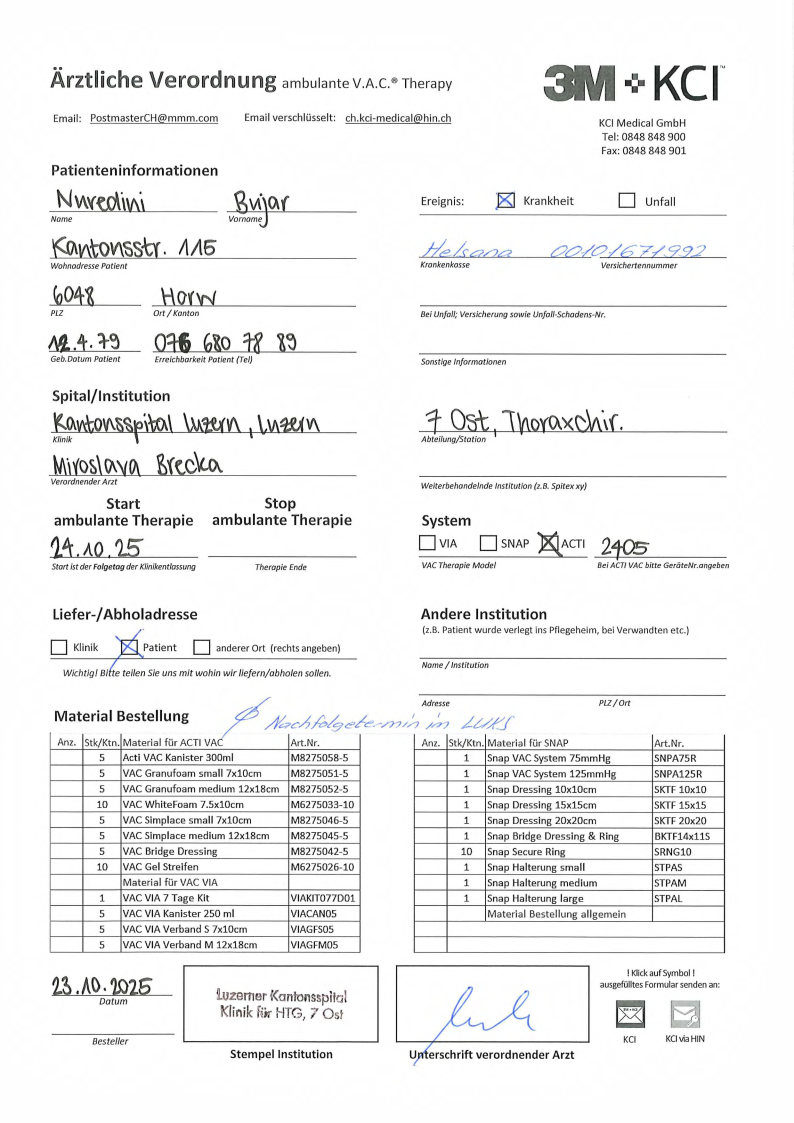 Ärztliche Verordnung ambulante V.A.C.® Therapy
3M KCI™
Email: PostmasterCH@mmm.com Email verschlüsselt: ch.kci-medical@hin.ch
KCI Medical GmbH
Tel: 0848 848 900
Fax: 0848 848 901
Patienteninformationen
Nuredini Bujar
Name Vorname
Kantonsstr. 115
Wohnadresse Patient
6048 Horw
PLZ Ort / Kanton
12.4.79 076 680 78 89
Geb.Datum Patient Erreichbarkeit Patient (Tel)
Ereignis: Krankheit Unfall
Helsana 00101671992
Krankenkasse Versichertennummer
Bei Unfall; Versicherung sowie Unfall-Schadens-Nr.
Sonstige Informationen
Spital/Institution
Kantonsspital Luzern, Luzern
Klinik
Miroslava Brecka
Verordnender Arzt
7 Ost, Thoraxchir.
Abteilung/Station
Weiterbehandelnde Institution (z.B. Spitex xy)
Start Stop
ambulante Therapie ambulante Therapie
24.10.25
Start ist der Folgetag der Klinikentlassung Therapie Ende
System
VIA SNAP ACTI 2405
VAC Therapie Model Bei ACTI VAC bitte GeräteNr.angeben
Liefer-/Abholadresse
Klinik Patient anderer Ort (rechts angeben)
Wichtig! Bitte teilen Sie uns mit wohin wir liefern/abholen sollen.
Andere Institution
(z.B. Patient wurde verlegt ins Pflegeheim, bei Verwandten etc.)
Name / Institution
Adresse PLZ / Ort
Material Bestellung
Nachfolgetermin im LUKS
Anz. Stk/Ktn. Material für ACTI VAC Art.Nr.
5 Acti VAC Kanister 300ml M8275058-5
5 VAC Granufoam small 7x10cm M8275051-5
5 VAC Granufoam medium 12x18cm M8275052-5
10 VAC WhiteFoam 7.5x10cm M6275033-10
5 VAC Simplace small 7x10cm M8275046-5
5 VAC Simplace medium 12x18cm M8275045-5
5 VAC Bridge Dressing M8275042-5
10 VAC Gel Streifen M6275026-10
Material für VAC VIA
1 VAC VIA 7 Tage Kit VIAKIT077D01
5 VAC VIA Kanister 250 ml VIACAN05
5 VAC VIA Verband S 7x10cm VIAGFS05
5 VAC VIA Verband M 12x18cm VIAGFM05
Anz. Stk/Ktn. Material für SNAP Art.Nr.
1 Snap VAC System 75mmHg SNPA75R
1 Snap VAC System 125mmHg SNPA125R
1 Snap Dressing 10x10cm SKTF 10x10
1 Snap Dressing 15x15cm SKTF 15x15
1 Snap Dressing 20x20cm SKTF 20x20
1 Snap Bridge Dressing & Ring BKTF14x11S
10 Snap Secure Ring SRNG10
1 Snap Halterung small STPAS
1 Snap Halterung medium STPAM
1 Snap Halterung large STPAL
Material Bestellung allgemein
23.10.2025
Datum
Besteller
Luzerner Kantonsspital
Klinik für HTG, 7 Ost
Stempel Institution
Unterschrift verordnender Arzt
! Klick auf Symbol !
ausgefülltes Formular senden an:
KCI KCI via HIN